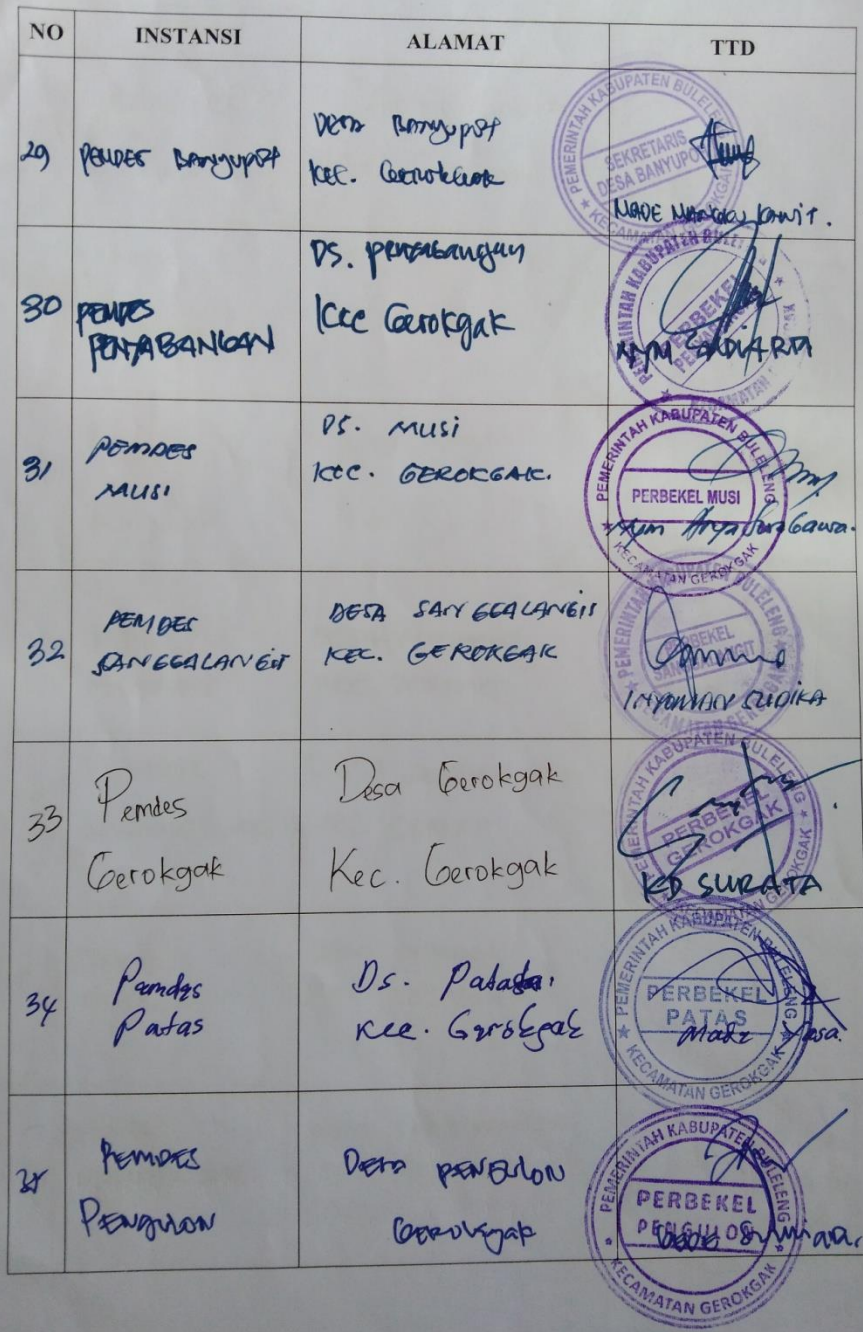 NO INSTANSI ALAMAT TTD
29 PEMDES Banyupoh Desa Banyupoh
Kec. Gerokgak
PEMERINTAH KABUPATEN BULELENG
SEKRETARIS
DESA BANYUPO
MADE KAWIT.
30 PEMDES
PENYABANGAN
DS. Penyabangan
Kec Gerokgak
PERBEKEL
NYM SUDIARTA
31 PEMDES
MUSI
DS. MUSI
KEC. GEROKGAK.
PEMERINTAH KABUPATEN BULELENG
PERBEKEL MUSI
KECAMATAN GEROKGAK
Nym Arya
32 PEMDES
SANGGALANGIT
DESA SANGGALANGIT
KEC. GEROKGAK
PERBEKEL
I NYOMAN SUDIKA
33 Pemdes
Gerokgak
Desa Gerokgak
Kec. Gerokgak
KABUPATEN BULELENG
PERBEKEL
GEROKGAK
KD SURATA
34 Pemdes
Patas
Ds. Patas
Kec. Gerokgak
PEMERINTAH KABUPATEN BULELENG
PERBEKEL
PATAS
KECAMATAN GEROKGAK
Made
35 PEMDES
PENGULON
Desa PENGULON
Gerokgak
PEMERINTAH KABUPATEN BULELENG
PERBEKEL
PENGULON
KECAMATAN GEROKGAK